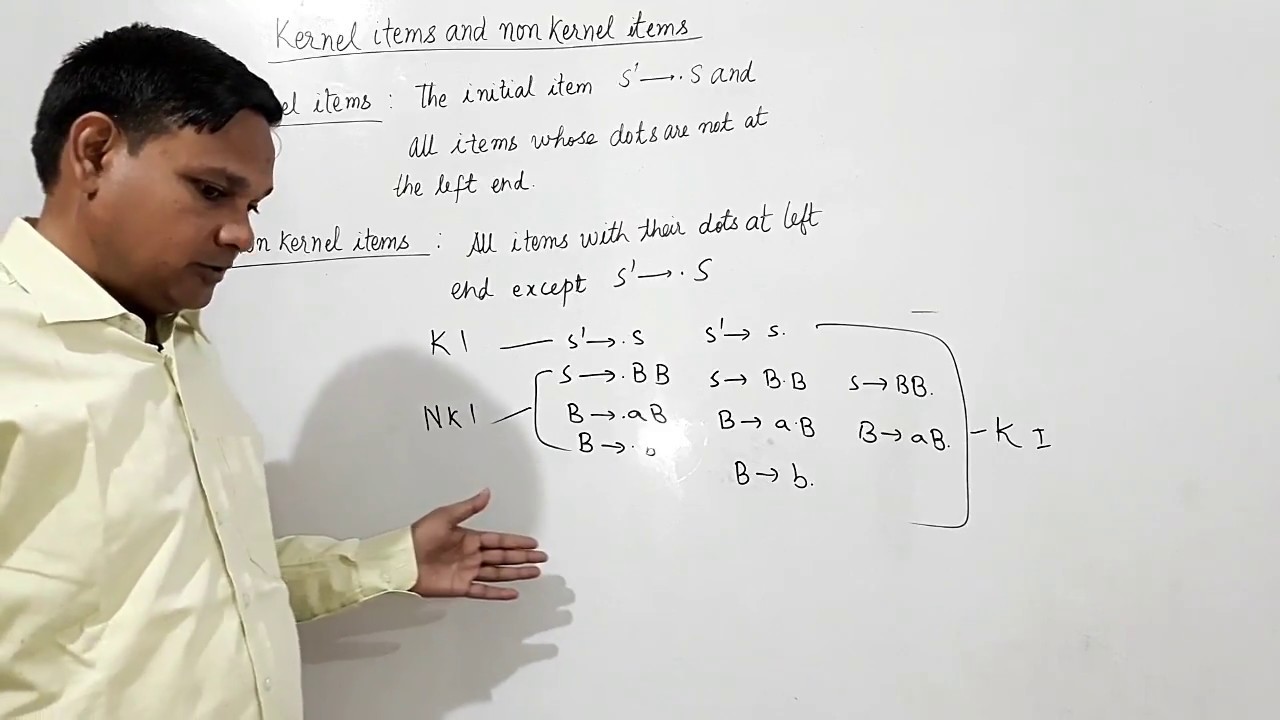 Kernel items and non kernel items
el items : The initial item S' → . S and
all items whose dots are not at
the left end.
on kernel items : All items with their dots at left
end except S' → . S
K I — S' → . S S' → S.
S → . B B S → B . B S → BB.
N k I B → . a B B → a . B B → aB. — K I
B → .
B → b.